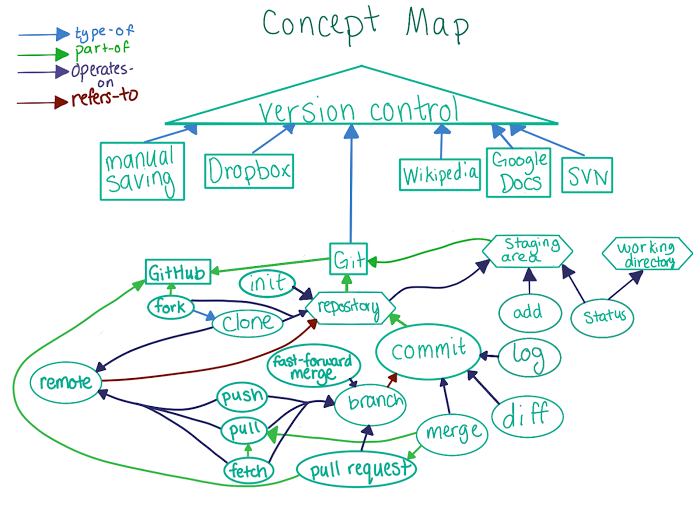 Concept Map
type-of
part-of
operates-
on
refers-to
version control
manual
saving
Dropbox
Wikipedia
Google
Docs
SVN
GitHub
Git
staging
area
working
directory
init
fork
clone
repository
add
status
commit
log
fast-forward
merge
remote
push
branch
diff
pull
merge
fetch
pull request